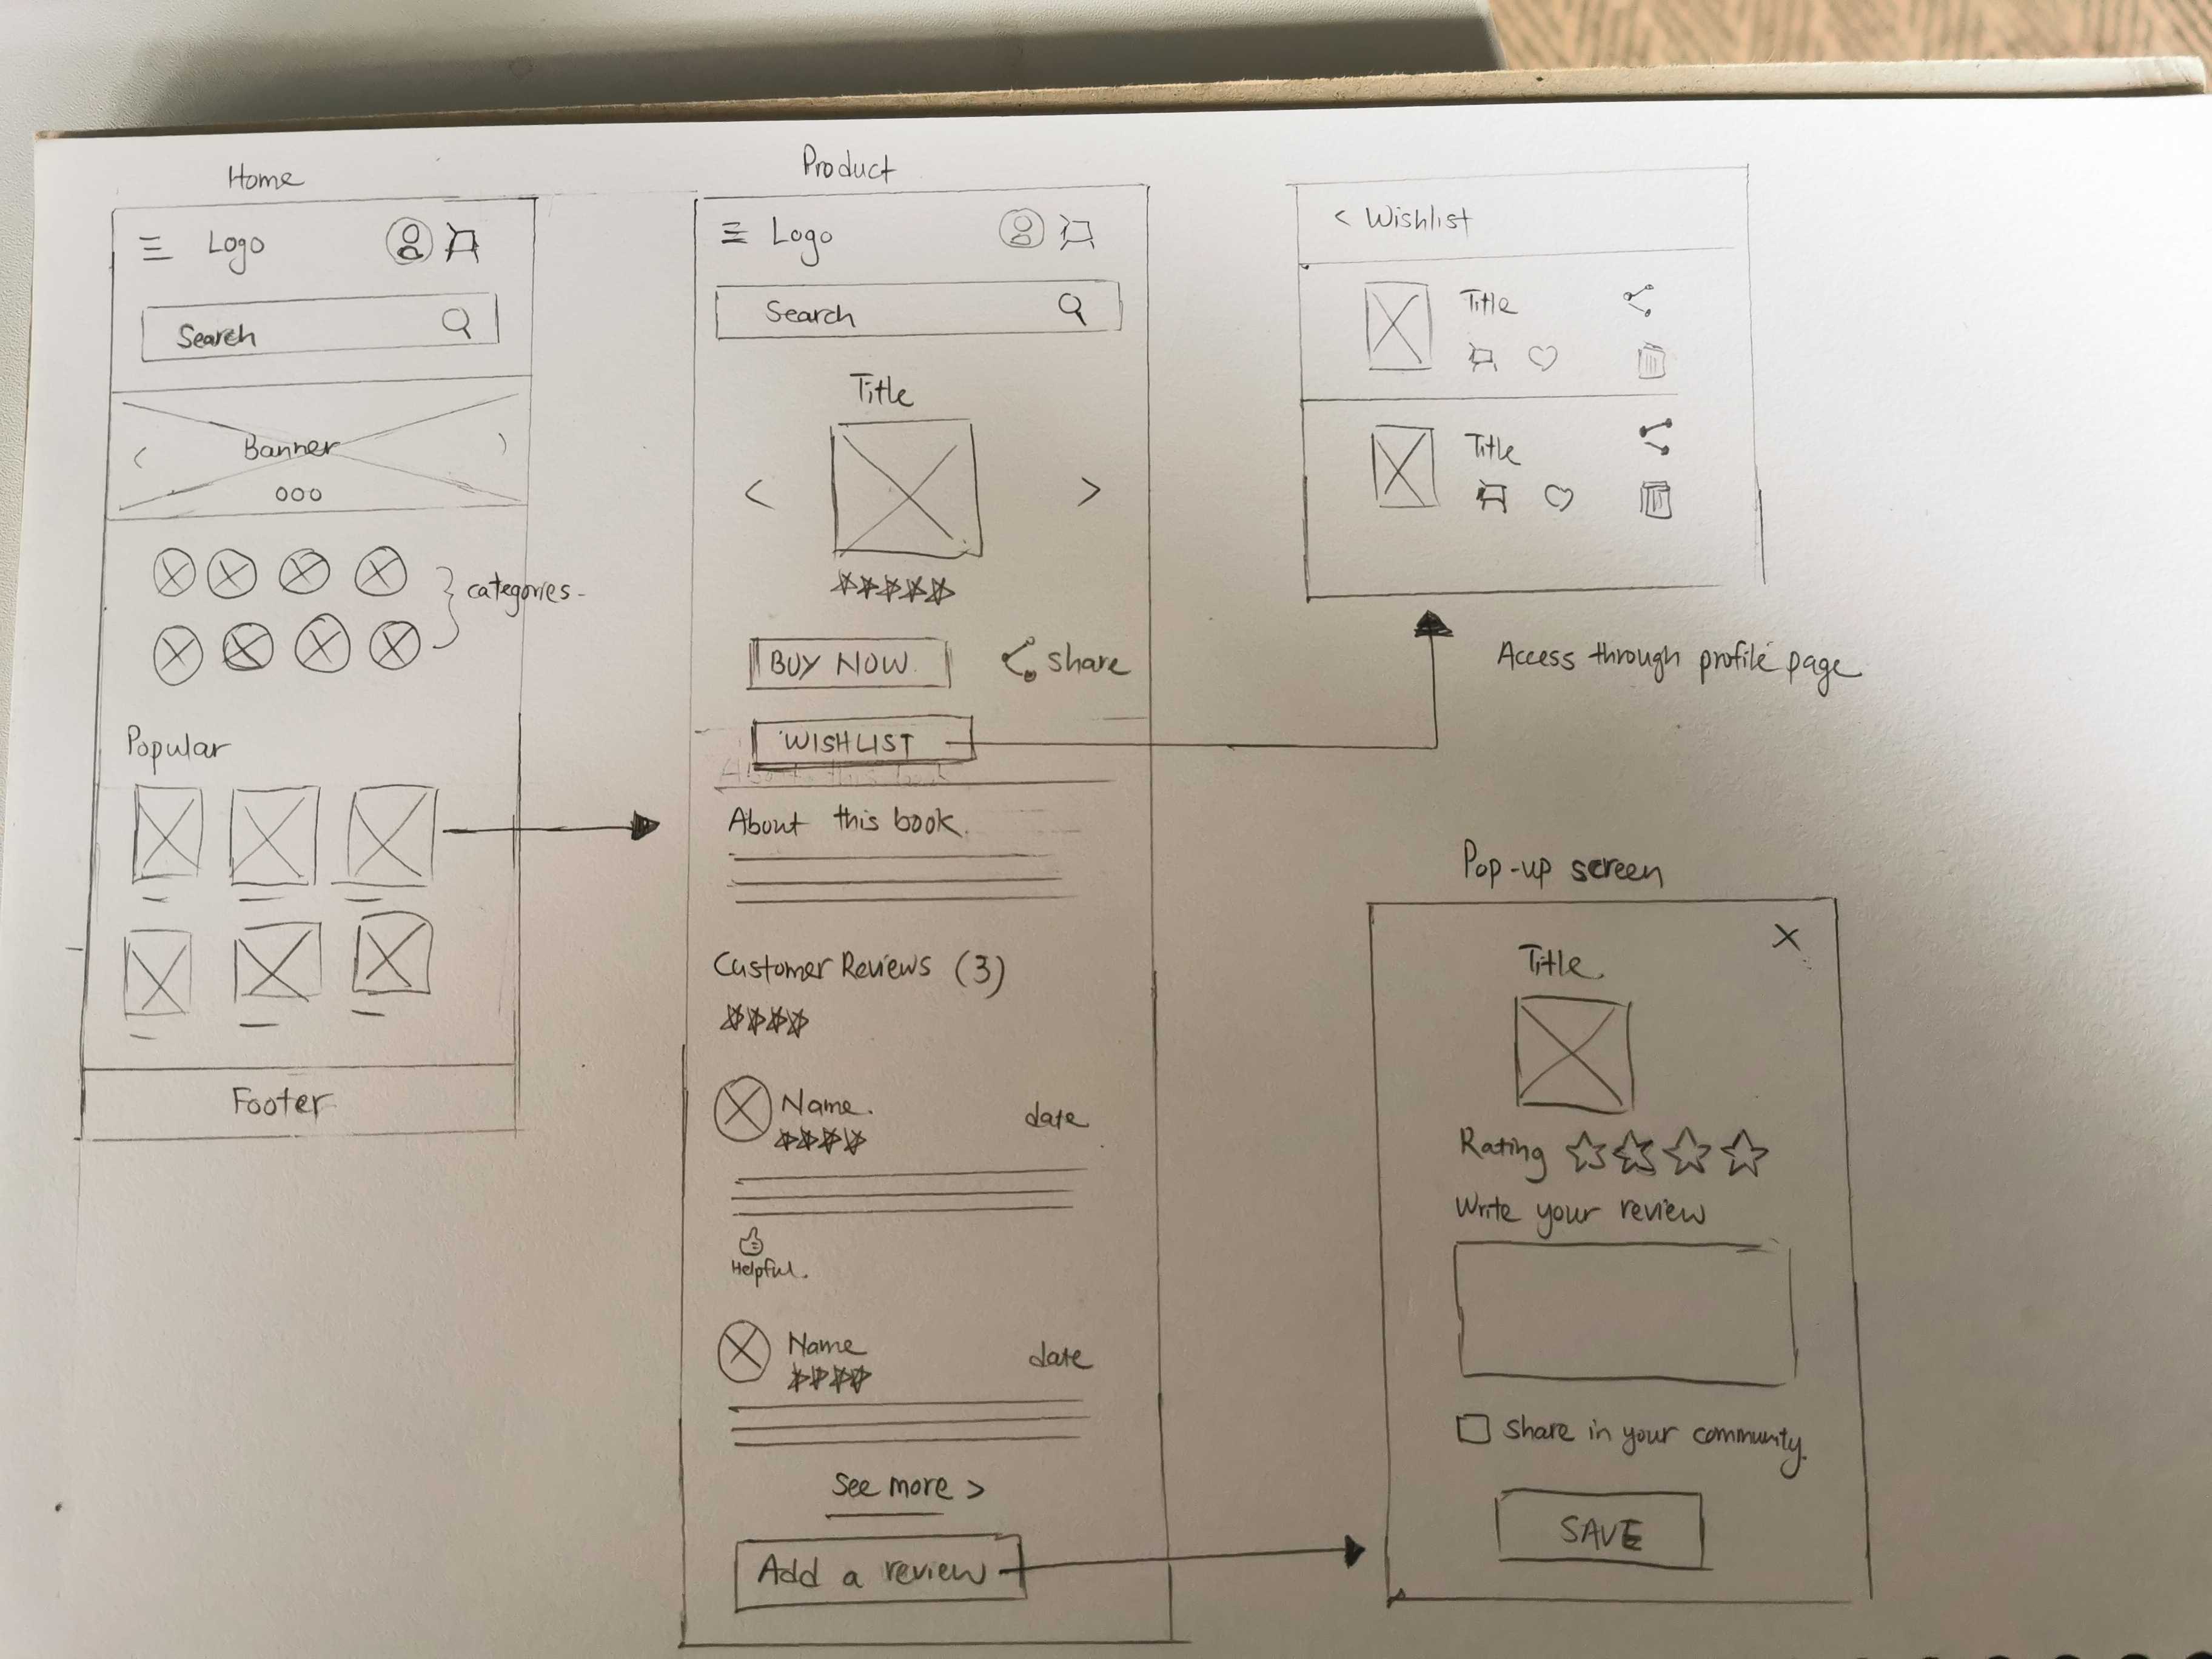 Home
Logo
Search
Banner
categories
Popular
Footer
Product
Logo
Search
Title
BUY NOW
share
WISHLIST
About this book.
Customer Reviews (3)
Name.
date
Helpful.
Name
date
See more >
Add a review
< Wishlist
Title
Title
Access through profile page
Pop-up screen
X
Title
Rating
Write your review
share in your community.
SAVE